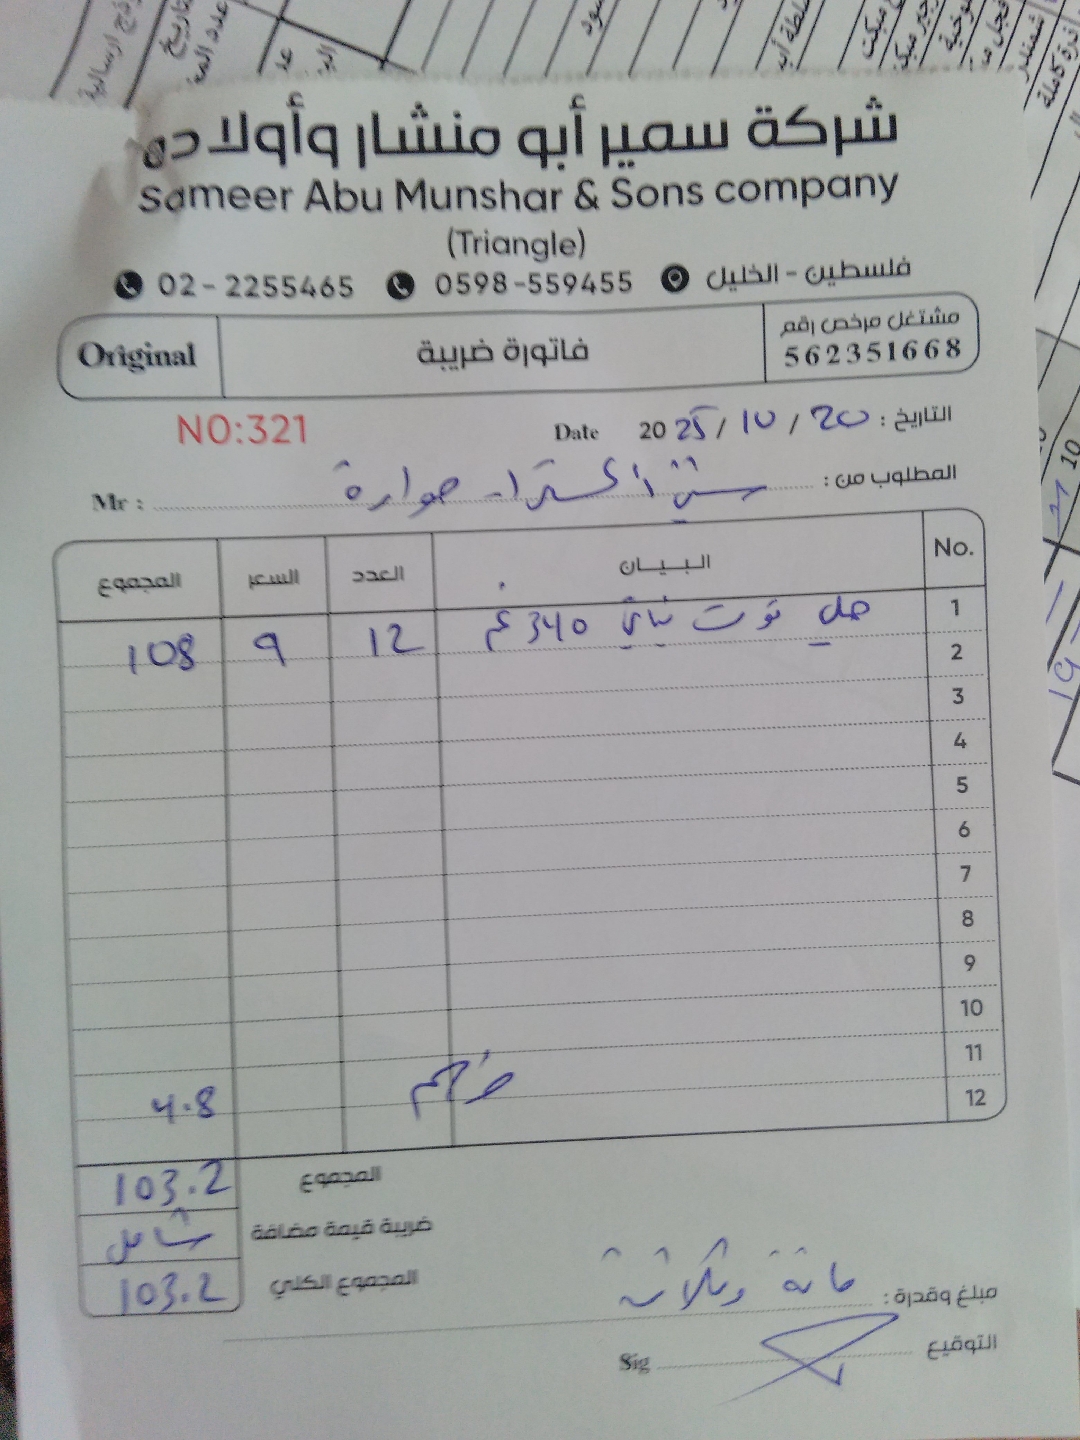 شركة سمير أبو منشار وأولاده
Sameer Abu Munshar & Sons company
(Triangle)
02 - 2255465 0598 -559455 فلسطين - الخليل
Original فاتورة ضريبة مشتغل مرخص رقم
562351668
NO:321 Date 2025 / 10 / 20 التاريخ :
Mr : حوارة المطلوب من :
No. البيان العدد السعر المجموع
1 توت 340 غم
2 12 9 108
3
4
5
6
7
8
9
10
11 خصم
12 4.8
المجموع 103.2
ضريبة قيمة مضافة شامل
المجموع الكلي 103.2
مبلغ وقدرة : مائة وثلاثة
التوقيع Sig